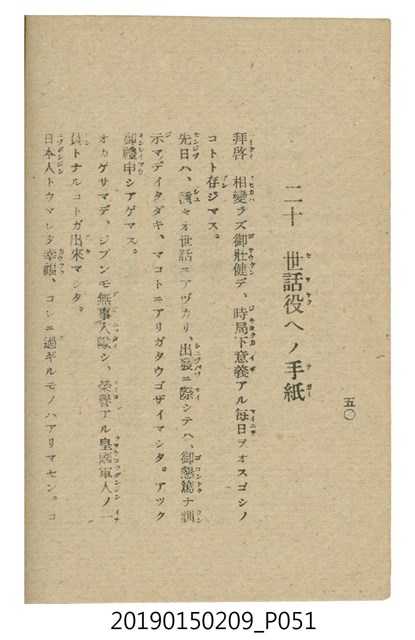 二十 世話役ヘノ手紙
拜啓 相變ラズ御壯健デ、時局下意義アル每日ヲオスゴシノ
コトト存ジマス。
先日ハ、種々オ世話ニアヅカリ、出發ニ際シテハ、御懇篤ナ訓
示マデイタダキ、マコトニアリガタウゴザイマシタ。アツク
御禮申シアゲマス。
オカゲサマデ、ジブンモ無事入隊シ、榮譽アル皇國軍人ノ一
員トナルコトガ出來マシタ。
日本人トウマレタ幸福、コレニ過ギルモノハアリマセン。コ
五〇
20190150209_P051